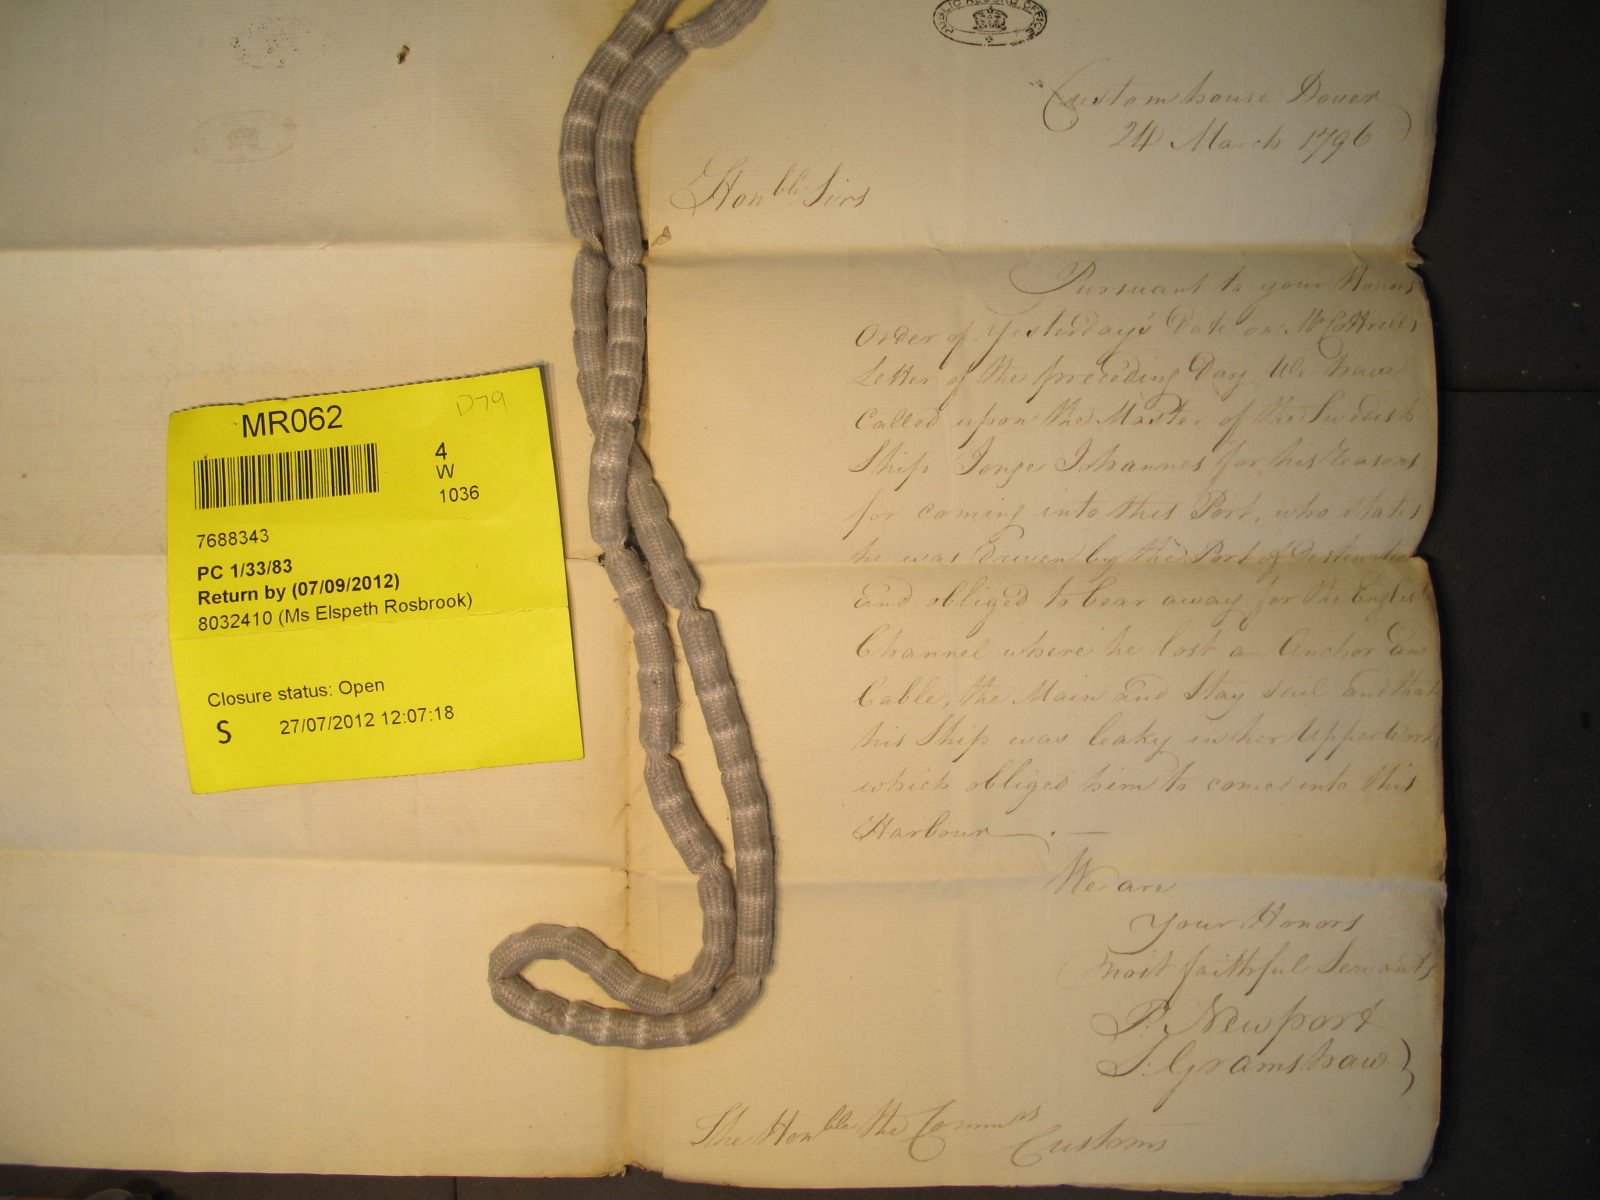 MR062
D79
4
W
1036
7688343
PC 1/33/83
Return by (07/09/2012)
8032410 (Ms Elspeth Rosbrook)
Closure status: Open
S 27/07/2012 12:07:18
PUBLIC RECORD OFFICE
Custom house Dover
24 March 1796
Honble Sirs
Pursuant to your Honors
Order of Yesterday's Date on Mr Cottrells
Letter of the preceding Day We have
Called upon the Master of the Swedish
Ship Jonge Johannes for his Reasons
for coming into this Port, who states
he was Driven by the Port of Destination
and obliged to bear away for the English
Channel where he lost an Anchor and
Cable, the Main and Stay Sail and that
his Ship was leaky in her Upper Works
which obliged him to come into this
Harbour
We are
Your Honors
most faithful Servants
P. Newport
J. Gramshaw
The Honble the Commrs
Customs